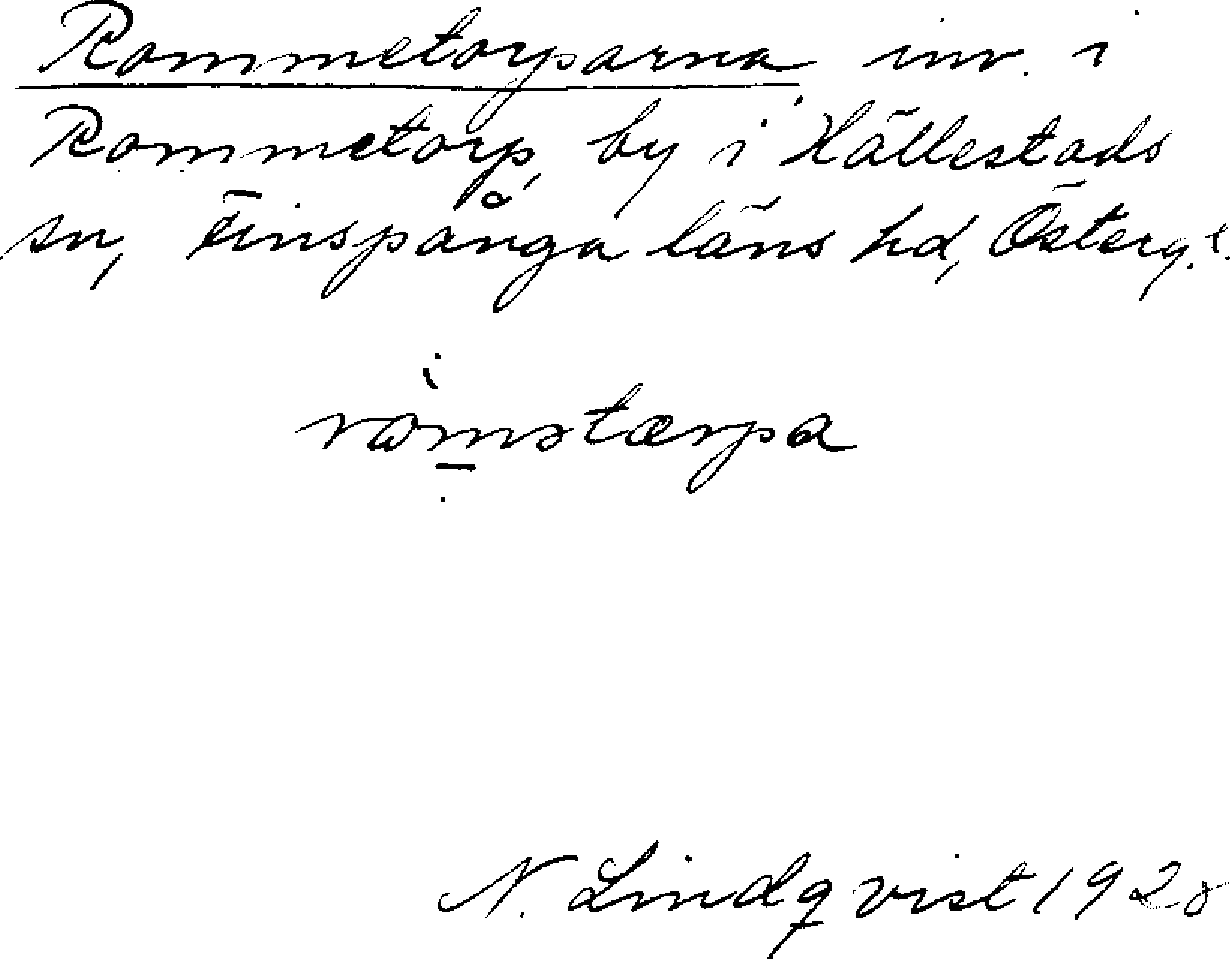 Rommetorparna inv. i
Rommetorp, by i Hällestads
sn, Finspånga läns hd, Österg. l.
romstærpa
N. Lindqvist 1928